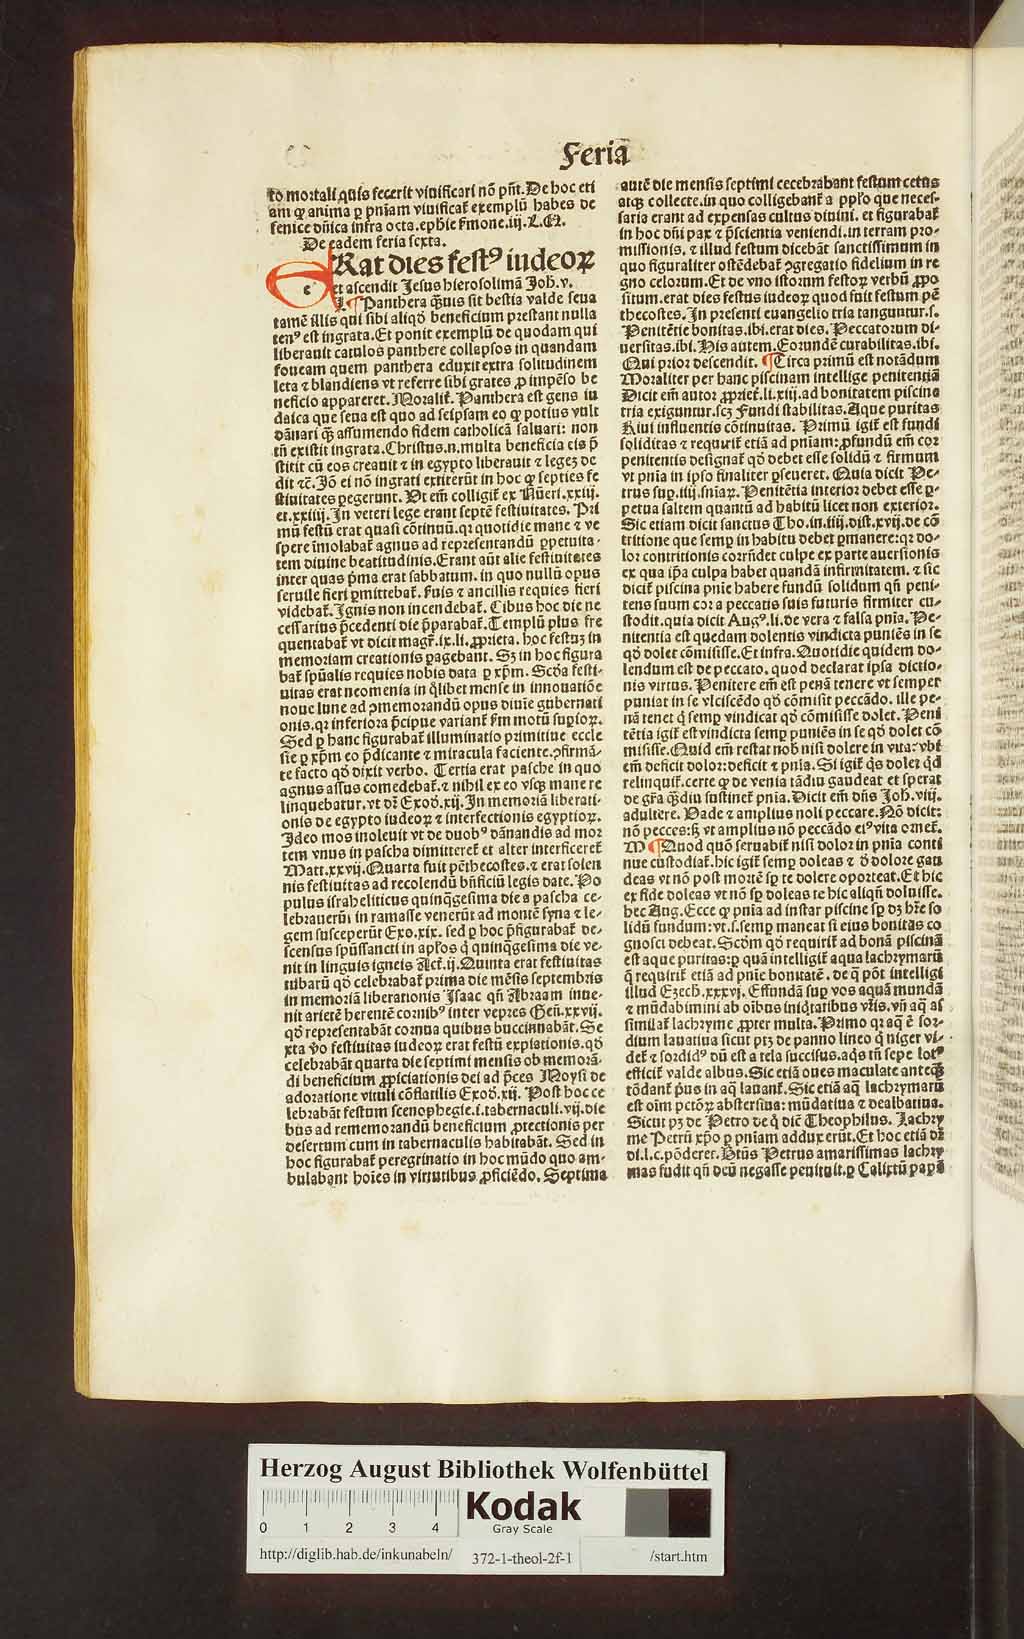 Feriã
to mortali quis fecerit viuificari nõ pñt. De hoc eti
am ꝙ anima ꝑ pñiam viuificat̃ exemplũ habes de
fenice dñica infra octa. epħie ẜmone. iij. L. N.
De eadem feria sexta.
ERat dies fest⁹ iudeoꝝ
et ascendit Jesus hierosolimã Joh̃. v.
L. ¶ Panthera q̃uis sit bestia valde seua
tamẽ illis qui sibi aliqđ beneficium prestant nulla
ten⁹ est ingrata. Et ponit exemplũ de quodam qui
liberauit catulos panthere collapsos in quandam
foueam quem panthera eduxit extra solitudinem
leta ⁊ blandiens vt referre sibi grates ꝓ impẽso be
neficio appareret. Moralit̃. Panthera est gens iu
daica que seua est quo ad seipsam eo ꝙ potius vult
dãnari q̃ꝫ assumendo fidem catholicã saluari: non
tñ existit ingrata. Christus. n. multa beneficia eis p̃
stitit cũ eos creauit ⁊ in egypto liberauit ⁊ legeꝫ de
dit ⁊c̃. Jõ ei nõ ingrati extiterũt in hoc ꝙ septies fe
stiuitates ꝑegerunt. Vt em̃ colligit̃ ex Nũeri. xxiij.
et. xxiiij. In veteri lege erant septẽ festiuitates. Pri
mũ festũ erat quasi cõtinuũ. qꝛ quotidie mane ⁊ ve
spere ĩmolabat̃ agnus ad representandũ ꝑpetuita-
tem diuine beatitudinis. Erant aũt alie festiuitates
inter quas p̃ma erat sabbatum. in quo nullũ opus
seruile fieri ꝑmittebat̃. Suis ⁊ ancillis requies fieri
videbat̃. Ignis non incendebat̃. Cibus hoc die ne
cessarius p̃cedenti die p̃parabat̃. Templũ plus fre
quentabat̃ vt dicit magr̃. ix. li. ꝓprieta. hoc festuꝫ in
memoriam creationis ꝑagebant. Sꝫ in hoc figura
bat̃ spũalis requies nobis data ꝑ xp̃m. Scđa festi-
uitas erat neomenia in q̃libet mense in innouatiõe
noue lune ad ꝯmemorandũ opus diuie gubernati
onis. qꝛ inferiora p̃cipue variant̃ ẜm motũ supioꝝ.
Sed ꝑ hanc figurabat̃ illuminatio primitiue eccle
sie ꝑ xp̃m eo p̃dicante ⁊ miracula faciente. ꝯfirmã-
te facto qđ dixit verbo. Tertia erat pasche in quo
agnus assus comedebat̃. ⁊ nihil ex eo vsqꝫ mane re
linquebatur. vt dʒ Exođ. xij. In memoriã liberati-
onis de egypto iudeoꝝ ⁊ interfectionis egyptioꝝ.
Ideo mos inoleuit vt de duob⁹ dãnandis ad mor
tem vnus in pascha dimitteret̃ et alter interficeret̃
Matt. xxvij. Quarta fuit pẽthecostes. ⁊ erat solen
nis festiuitas ad recolendũ bñficiũ legis date. Po
pulus israheliticus quinq̃gesima die a pascha ce-
lebrauerũt in ramasse venerũt ad montẽ syna ⁊ le-
gem susceperũt Exo. xix. sed ꝑ hoc p̃figurabat̃ de-
scensus spũssancti in apłos q̃ quinq̃gesima die ve-
nit in linguis igneis Act̃. ij. Quinta erat festiuitas
tubarũ qđ celebrabat̃ prima die mẽsis septembris
in memoriã liberationis Isaac qñ Abraam inue-
nit arietẽ herentẽ cornib⁹ inter vepres Geñ. xxvij.
qđ representabãt cornua quibus buccinnabãt. Se
xta v̾o festiuitas iudeoꝝ erat festũ expiationis. qđ
celebrabãt quarta die septimi mensis ob memorã-
di beneficium ꝓpiciationis dei ad p̃ces Moysi de
adoratione vituli cõflatilis Exođ. xij. Post hoc ce
lebrabãt festum scenophegie. i. tabernaculi. vij. die
bus ad rememorandũ beneficium ꝓtectionis per
desertum cum in tabernaculis habitabãt. Sed in
hoc figurabat̃ peregrinatio in hoc mũdo quo am-
bulabant hoĩes in virtutibus ꝓficiẽdo. Septima
autẽ die mensis septimi cecebrabant festum cetus
atqꝫ collecte. in quo colligebant̃ a ppło que neces-
saria erant ad expensas cultus diuini. et figurabat̃
in hoc dñi pax ⁊ p̃scientia veniendi. in terram pro-
missionis. ⁊ illud festum dicebãt sanctissimum in
quo figuraliter ostẽdebat̃ ꝯgregatio fidelium in re
gno celorum. Et de vno istorum festoꝝ verbũ ꝓpo
situm. erat dies festus iudeoꝝ quod fuit festum pẽ
thecostes. In presenti euangelio tria tanguntur. s.
Penitẽtie bonitas. ibi. erat dies. Peccatorum di-
uersitas. ibi. His autem. Eorundẽ curabilitas. ibi.
Qui prior descendit. ¶ Circa primũ est notãdum
Moraliter per hanc piscinam intellige penitentiã
Dicit em̃ autor ꝓpriet̃. li. xiij. ad bonitatem piscine
tria exiguntur. scꝫ Fundi stabilitas. Aque puritas
Riui influentis cõtinuitas. Primũ igit̃ est fundi
soliditas ⁊ requirit̃ etiã ad pñiam: ꝓfundũ em̃ cor
penitentis designat̃ qđ debet esse solidũ ⁊ firmum
vt pñia in ipso finaliter ꝑseueret. Quia dicit Pe-
trus suꝑ. iiij. sniaꝝ. Penitẽtia interior debet esse ꝑ-
petua saltem quantũ ad habitũ licet non exterior.
Sic etiam dicit sanctus Tho. in. iiij. dist. xvij. de cõ
tritione que semꝑ in habitu debet ꝑmanere: qꝛ do-
lor contritionis corrñdet culpe ex parte auersionis
ex qua ip̃a culpa habet quandã infirmitatem. ⁊ sic
dicit̃ piscina pñie habere fundũ solidum qñ peni-
tens suum cor a peccatis suis futuris firmiter cu-
stodit. quia dicit Aug⁹. li. de vera ⁊ falsa pñia. Pe-
nitentia est quedam dolentis vindicta puniẽs in se
qđ dolet cõmisisse. Et infra. Quotidie quidem do-
lendum est de peccato. quod declarat ipsa dictio-
nis virtus. Penitere em̃ est penã tenere vt semper
puniat in se vlciscẽdo qđ cõmisit peccãdo. ille pe-
nã tenet q̃ semꝑ vindicat qđ cõmisisse dolet. Peni
tẽtia igit̃ est vindicta semꝑ puniẽs in se qđ dolet cõ
misisse. Quid em̃ restat nob̃ nisi dolere in vita: vbi
em̃ deficit dolor: deficit ⁊ pñia. Si igit̃ q̃s dolet q̃d
relinquit̃. certe ꝙ de venia tãdiu gaudeat et sperat
de gr̃a q̃diu sustinet̃ pñia. Dicit em̃ dñs Joh̃. viij.
adultere. Vade ⁊ amplius noli peccare. Nõ dicit:
nõ pecces: sꝫ vt amplius nõ peccãdo ei⁹ vita omet̃.
M ¶ Quod quõ seruabit̃ nisi dolor in pñia conti
nue custodiat̃. hic igit̃ semꝑ doleas ⁊ đ dolore gau
deas vt nõ post mortẽ sꝑ te dolere oporteat. Et hic
ex fide doleas vt nõ sꝑ doleas te hic aliqñ doluisse.
hec Aug. Ecce ꝙ pñia ad instar piscine sꝑ dꝫ hr̃e so
lidũ fundum: vt. s. semꝑ maneat si eius bonitas co
gnosci debeat. Scđm qđ requirit̃ ad bonã piscinã
est aque puritas: ꝑ quã intelligit̃ aqua lachrymarũ
q̃ requirit̃ etiã ad pñie bonitatẽ. de q̃ põt intelligi
illud Ezech. xxxvj. Effundã suꝑ vos aquã mundã
⁊ mũdabimini ab oĩbus iniq̃tatibus vr̃is. vñ aq̃ as
similat̃ lachryme ꝓpter multa. Primo qꝛ aq̃ ẽ sor-
dium lauatiua sicut ptꝫ de panno lineo q̃ niger vi-
det̃ ⁊ sordid⁹ dũ est a tela succisus. aq̃s tñ sepe lot⁹
efficit̃ valde albus. Sic etiã oues maculate anteq̃ꝫ
tõdant̃ p̃us in aq̃ lauant̃. Sic etiã aq̃ lachrymarũ
est oĩm pctõꝝ abstersiua: mũdatiua ⁊ dealbatiua.
Sicut pꝫ de Petro de q̃ dic̃ Theophilus. Lachry
me Petrũ xp̃o ꝑ pñiam adduxerũt. Et hoc etiã dʒ
di. l. c. põderet. Btũs Petrus amarissimas lachry
mas fudit qñ dcũ negasse penituit. ꝑ Calixtũ papã
Herzog August Bibliothek Wolfenbüttel
0 1 2 3 4
Kodak
Gray Scale
http://diglib.hab.de/inkunabeln/ 372-1-theol-2f-1 /start.htm